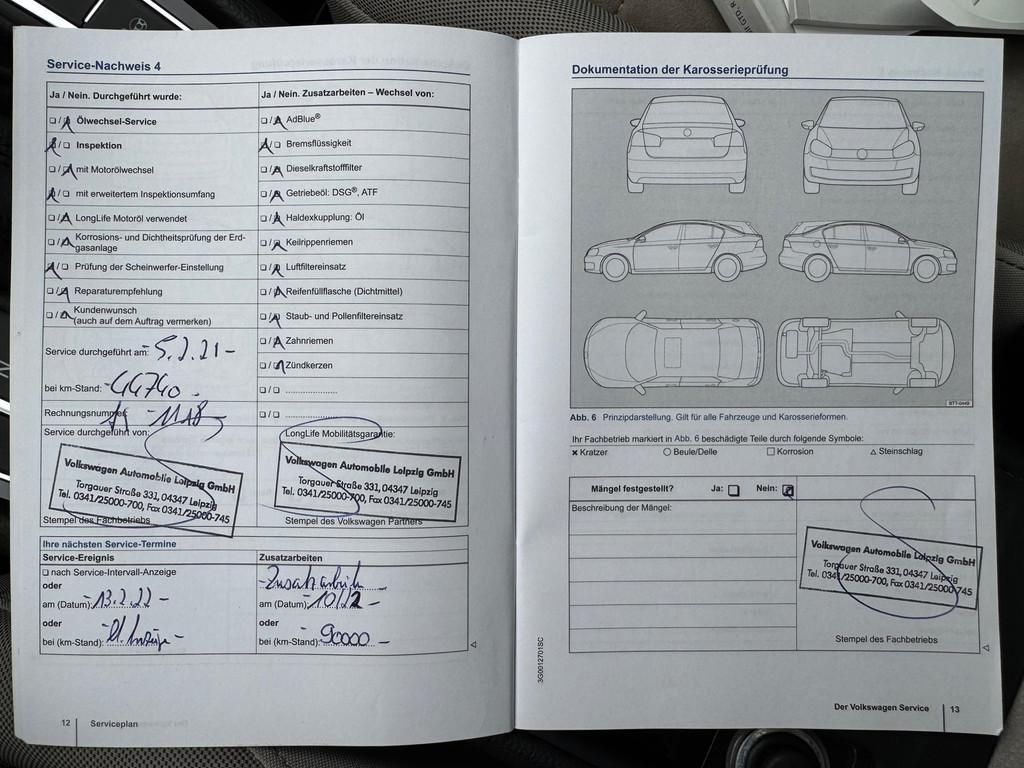 Service-Nachweis 4
Ja / Nein. Durchgeführt wurde:
Ja / Nein. Zusatzarbeiten – Wechsel von:
Ölwechsel-Service
AdBlue®
Inspektion
Bremsflüssigkeit
mit Motorölwechsel
Dieselkraftstofffilter
mit erweitertem Inspektionsumfang
Getriebeöl: DSG®, ATF
LongLife Motoröl verwendet
Haldexkupplung: Öl
Korrosions- und Dichtheitsprüfung der Erd-
gasanlage
Keilrippenriemen
Prüfung der Scheinwerfer-Einstellung
Luftfiltereinsatz
Reparaturempfehlung
Reifenfüllflasche (Dichtmittel)
Kundenwunsch
(auch auf dem Auftrag vermerken)
Staub- und Pollenfiltereinsatz
Zahnriemen
Zündkerzen
Service durchgeführt am: 5.2.21
bei km-Stand: 44740
Rechnungsnummer:
Service durchgeführt von:
LongLife Mobilitätsgarantie:
Volkswagen Automobile Leipzig GmbH
Torgauer Straße 331, 04347 Leipzig
Tel. 0341/25000-700, Fax 0341/25000-745
Stempel des Fachbetriebs
Volkswagen Automobile Leipzig GmbH
Torgauer Straße 331, 04347 Leipzig
Tel. 0341/25000-700, Fax 0341/25000-745
Stempel des Volkswagen Partners
Ihre nächsten Service-Termine
Service-Ereignis
Zusatzarbeiten
nach Service-Intervall-Anzeige
oder
am (Datum): 13.2.22
oder
bei (km-Stand):
Zusatzarbeiten
am (Datum): 10/22
oder
bei (km-Stand): 90000
12 Serviceplan
Dokumentation der Karosserieprüfung
B7T-0449
Abb. 6 Prinzipdarstellung. Gilt für alle Fahrzeuge und Karosserieformen.
Ihr Fachbetrieb markiert in Abb. 6 beschädigte Teile durch folgende Symbole:
× Kratzer ○ Beule/Delle □ Korrosion △ Steinschlag
Mängel festgestellt? Ja: Nein:
Beschreibung der Mängel:
Volkswagen Automobile Leipzig GmbH
Torgauer Straße 331, 04347 Leipzig
Tel. 0341/25000-700, Fax 0341/25000-745
Stempel des Fachbetriebs
3G0012701SC
Der Volkswagen Service 13